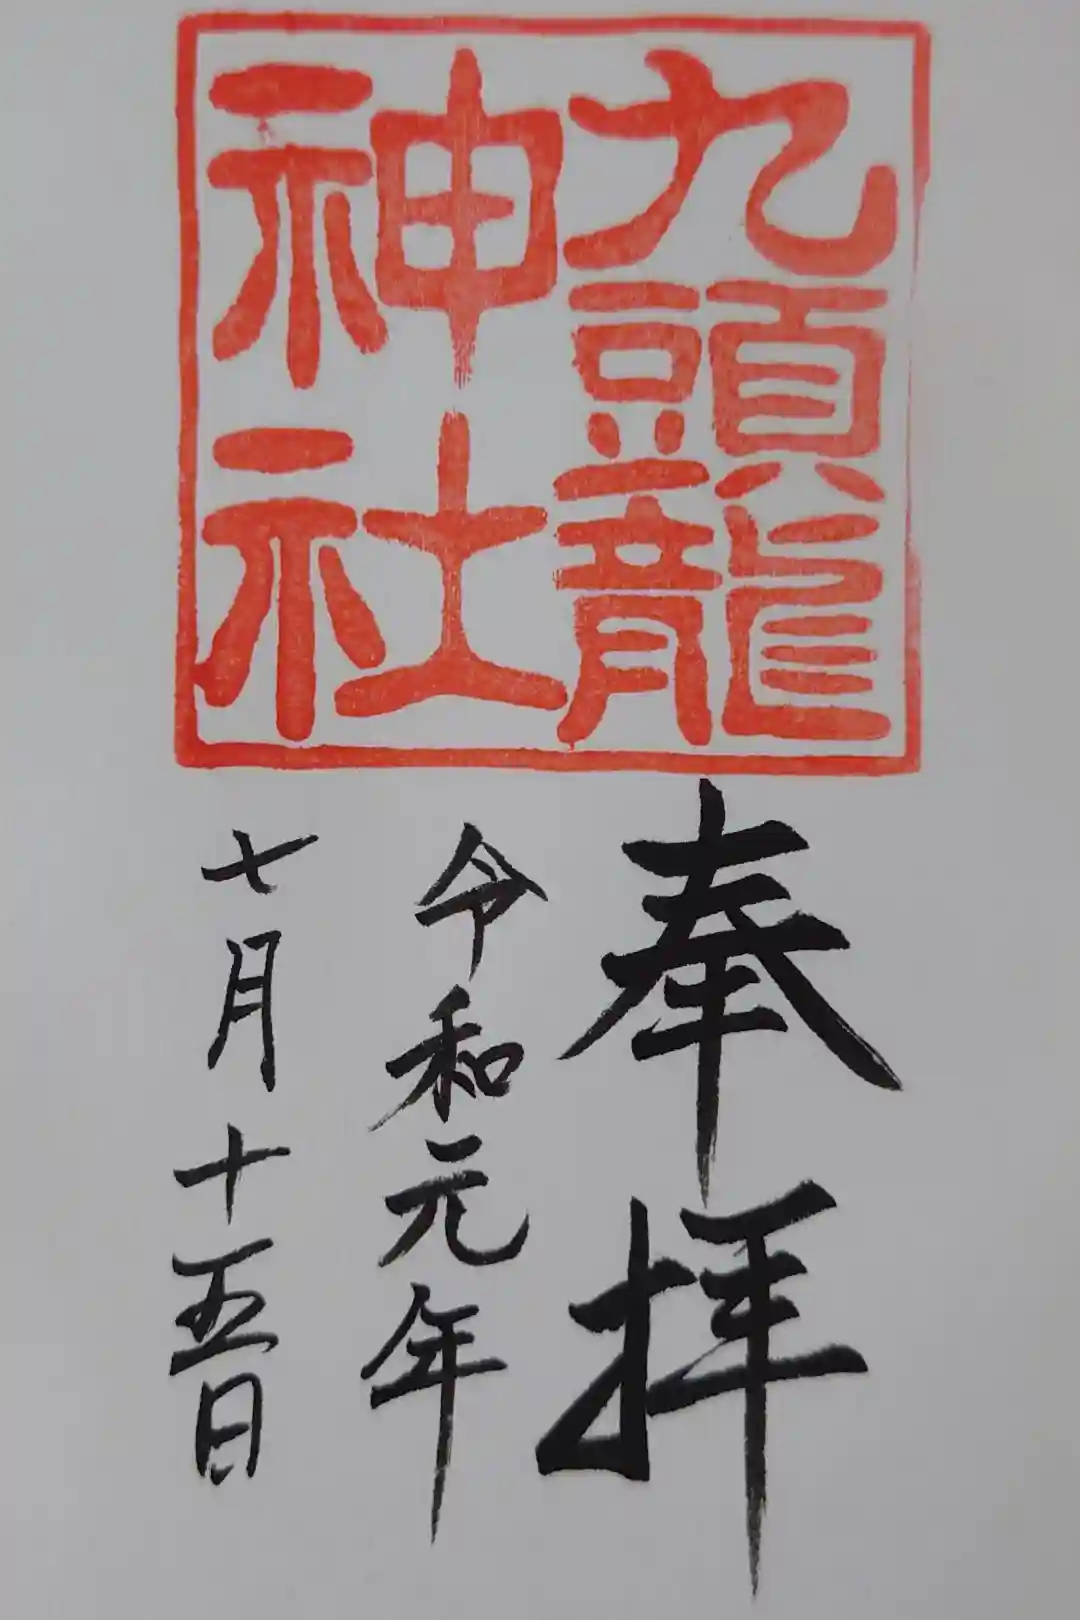 九頭龍
神社
奉拝
令和元年
七月十五日